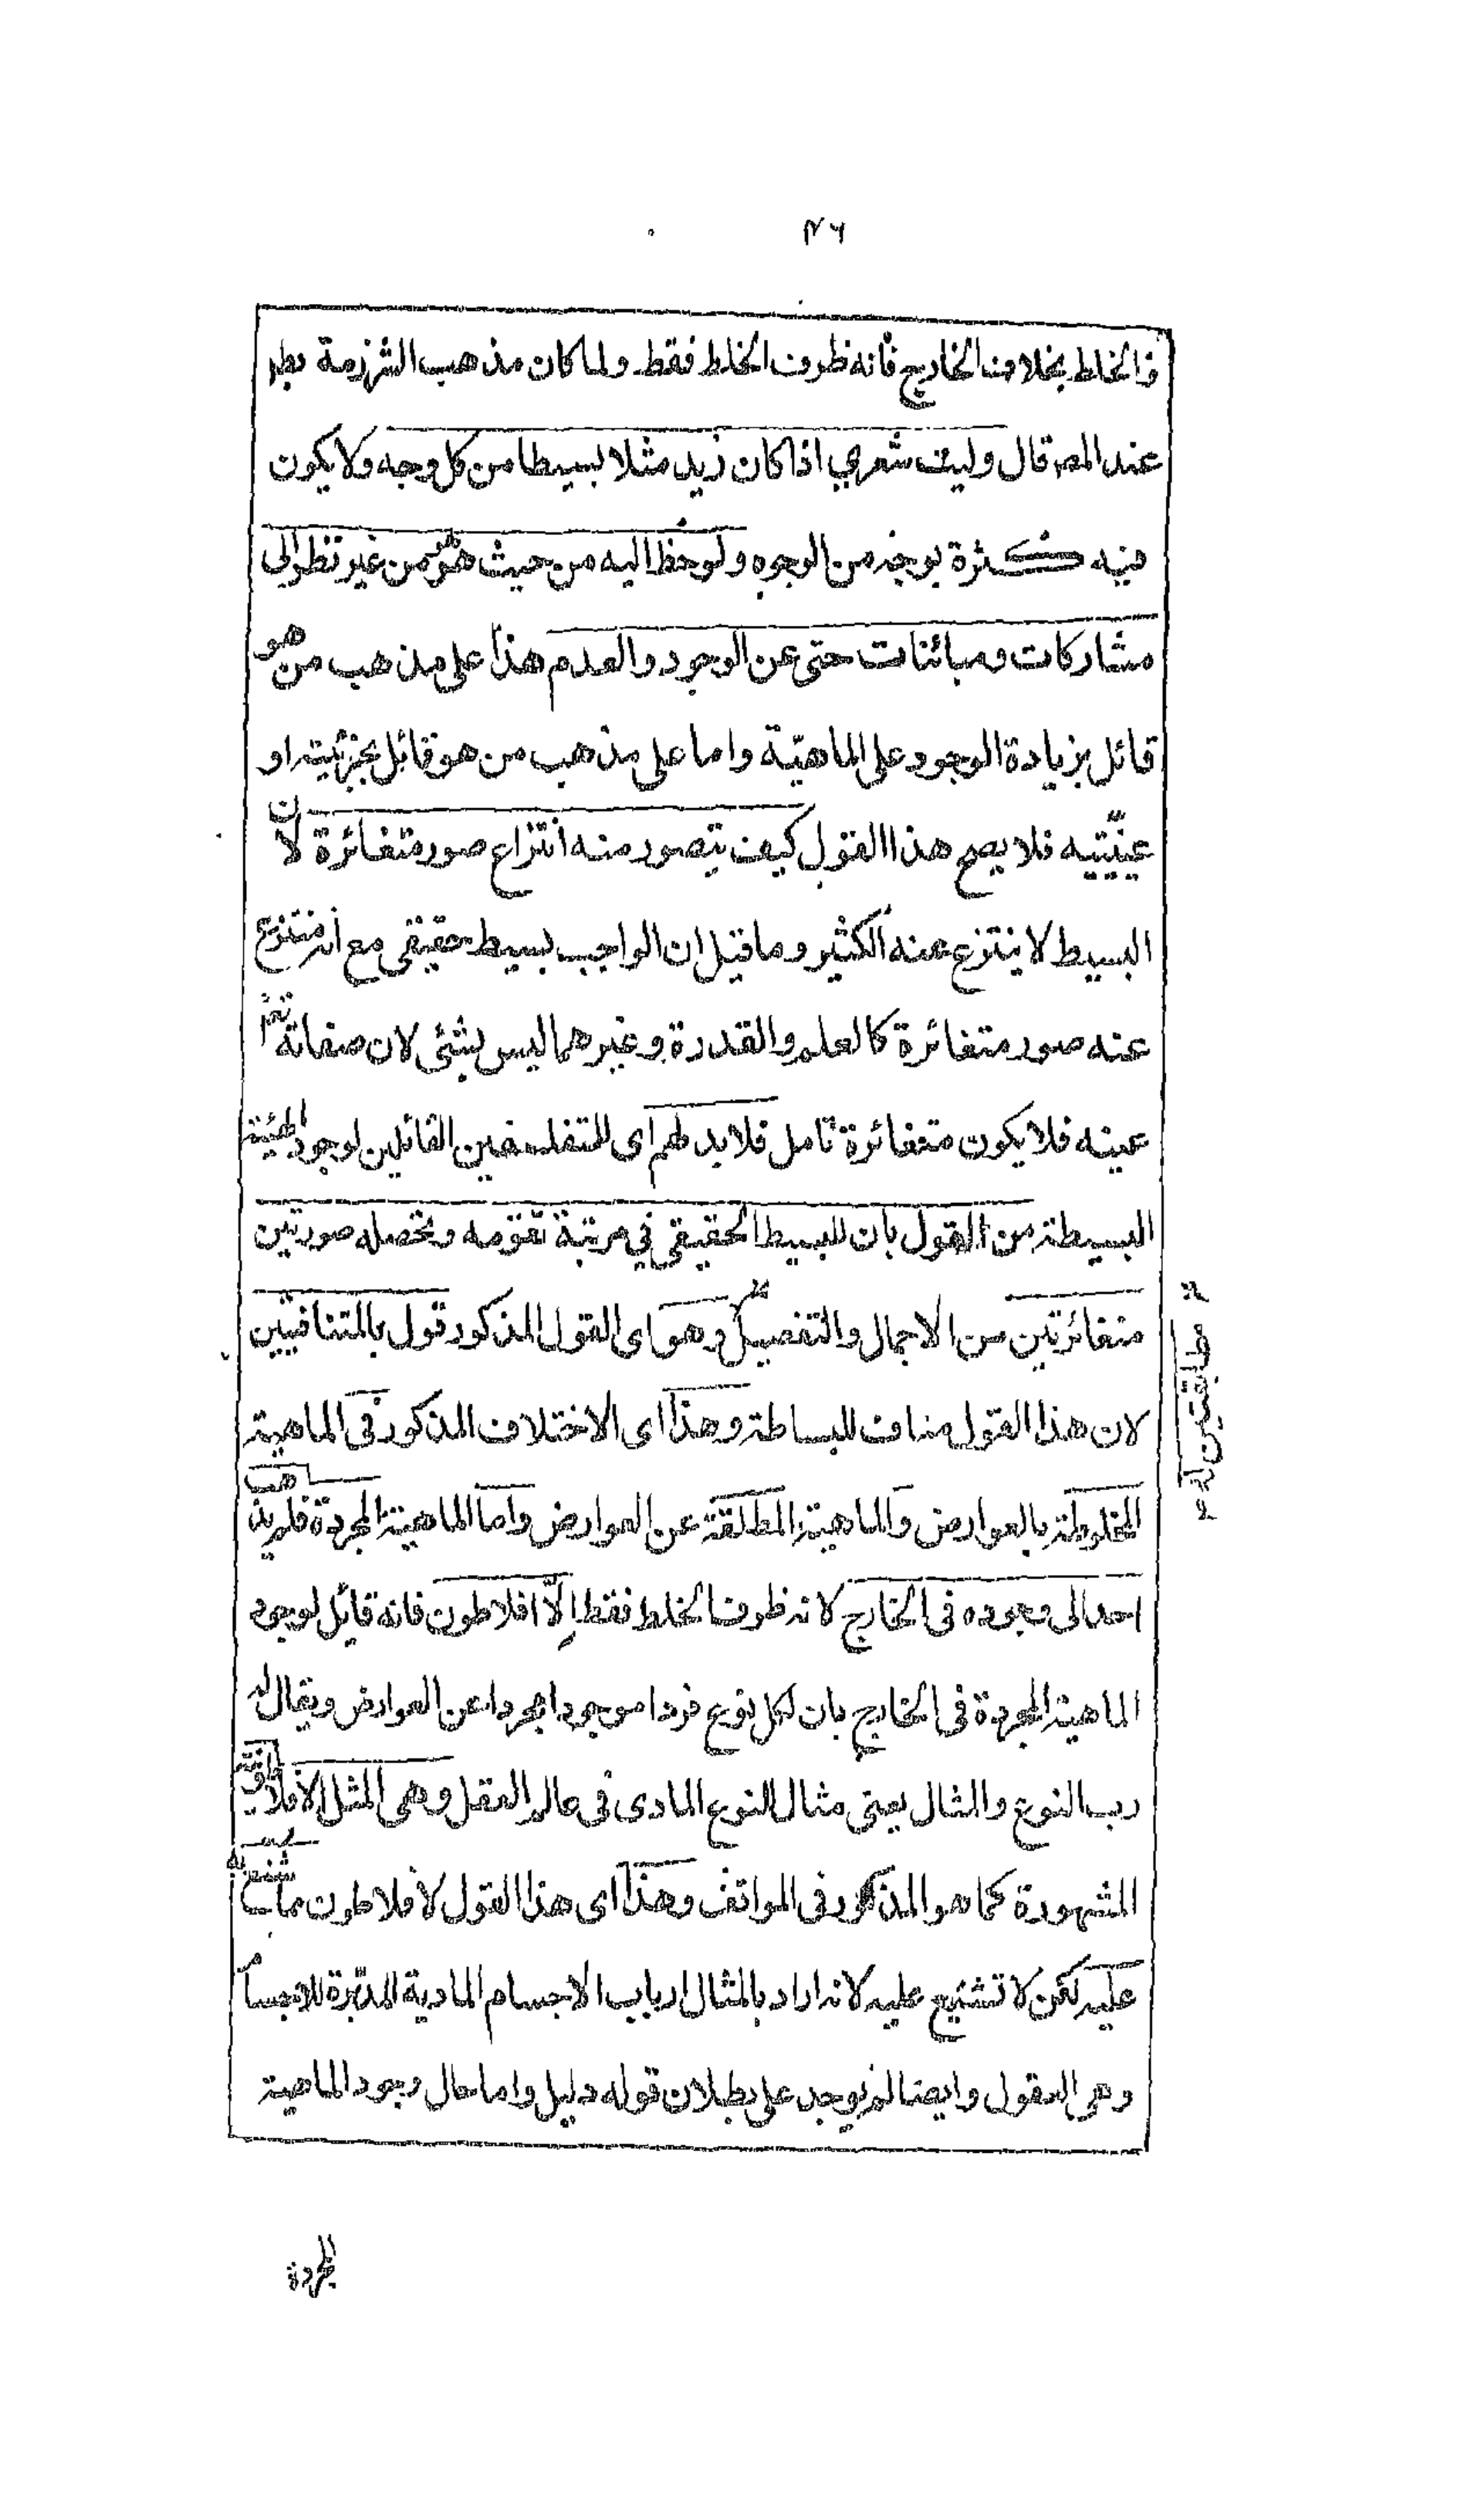 ٣٦
والخلط بخلاف الخارج فانه ظرف الخلط فقط ولما كان مذهب الشرزمة
عند المص قال وليت شعري اذا كان زيد مثلا بسيطا من كل وجه ولا يكون
فيه كثرة بوجه من الوجوه ولوحظ اليه من حيث هو من غير نظر الى
مشاركات ومبائنات حتى عن الوجود والعدم هذا على مذهب من هو
قائل بزيادة الوجود على الماهيّة واما على مذهب من هو قائل بجزئيته او
عينيّته فلا يصح هذا القول كيف يتصور منه انتزاع صور متغائرة لان
البسيط لا ينتزع عنه الكثير وما قيل ان الواجب بسيط حقيقى مع انه منتزع
عنه صور متغائرة كالعلم والقدرة وغيرهما ليس بشئ لان صفاته تعم
عينه فلا يكون متغائرة تامل فلابد لهم اى للمتفلسفين القائلين لوجود
البسيطة من القول بان للبسيط الحقيقي في مرتبة تقومه وتحصله صورتين
متغائرتين من الاجمال والتفصيل وهو اى القول المذكور قول بالمتنافيين
لان هذا القول مناف للبساطة وهذا اى الاختلاف المذكور فى الماهية
المخلوطة بالعوارض والماهية المطلقة عن العوارض واما الماهية المجردة فلم يذهب
احد الى وجوده فى الخارج لانه ظرف الخلط فقط إلّا افلاطون فانه قائل لوجود
الماهية المجردة فى الخارج بان لكل نوع فردا موجودا مجردا عن العوارض ويقال له
رب النوع والمثال يعنى مثال النوع المادى فى عالم العقل وهى المثل الافلاطونية
المشهورة كما هو المذكور فى المواقف وهذا اى هذا القول لافلاطون مما يشنع به
عليه لكن لا تشنيع عليه لانه اراد بالمثال ارباب الاجسام المادية المدبّرة للاجسا
وهى العقول وايضا لم يوجد على بطلان قوله دليل واما حال وجود الماهية
المجردة
مطابقتين له